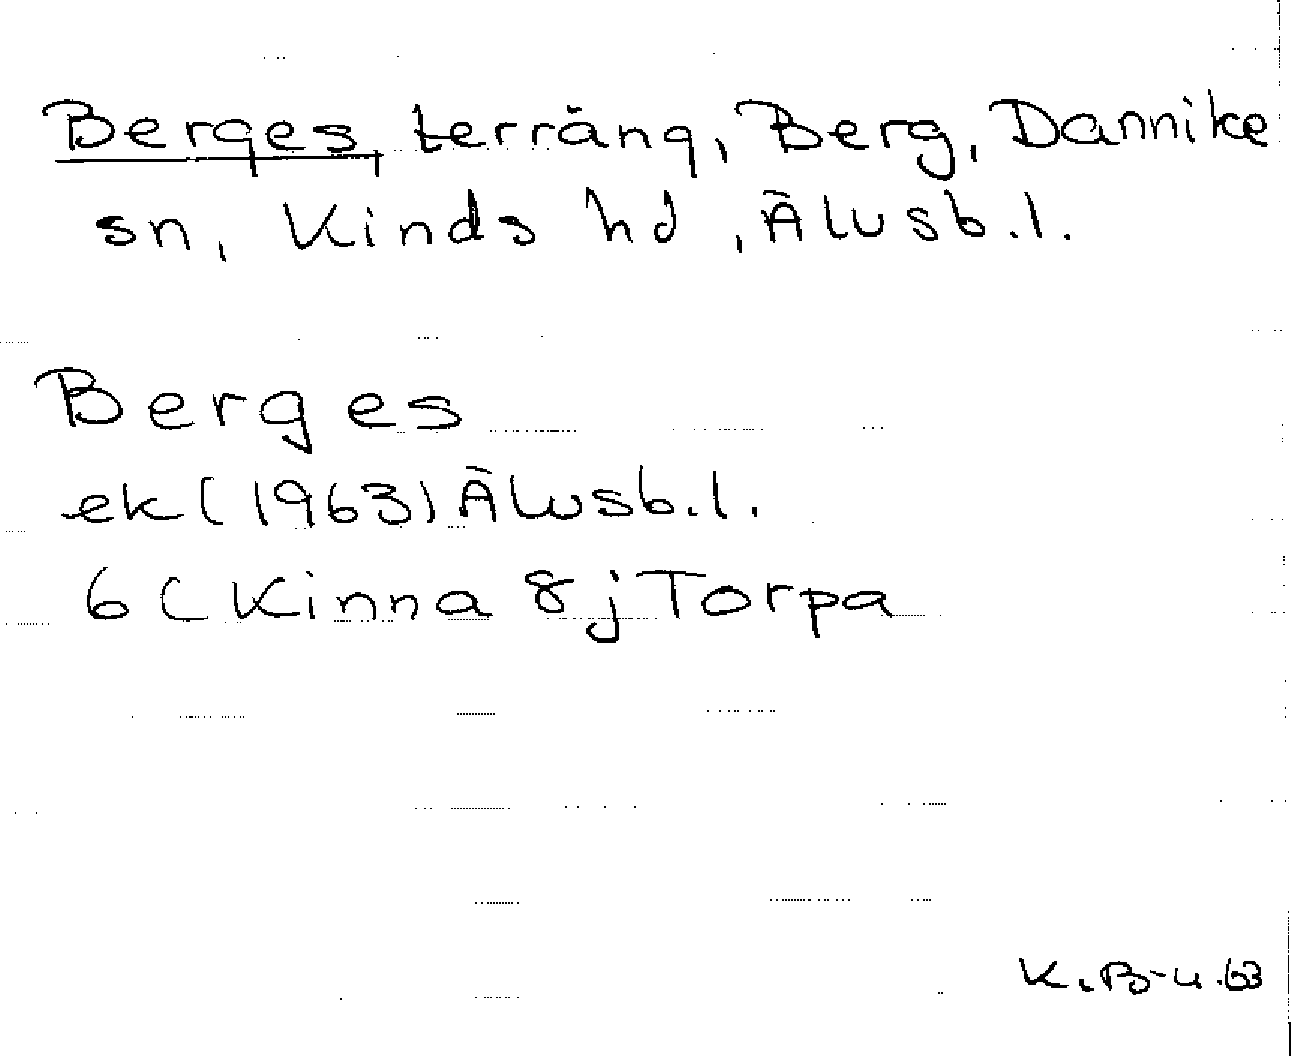 Berges, terräng, Berg, Dannike
sn, Kinds hd, Älvsb.l.
Berges
ek (1963) Älvsb.l.
6C Kinna 8j Torpa
K.B-u.63